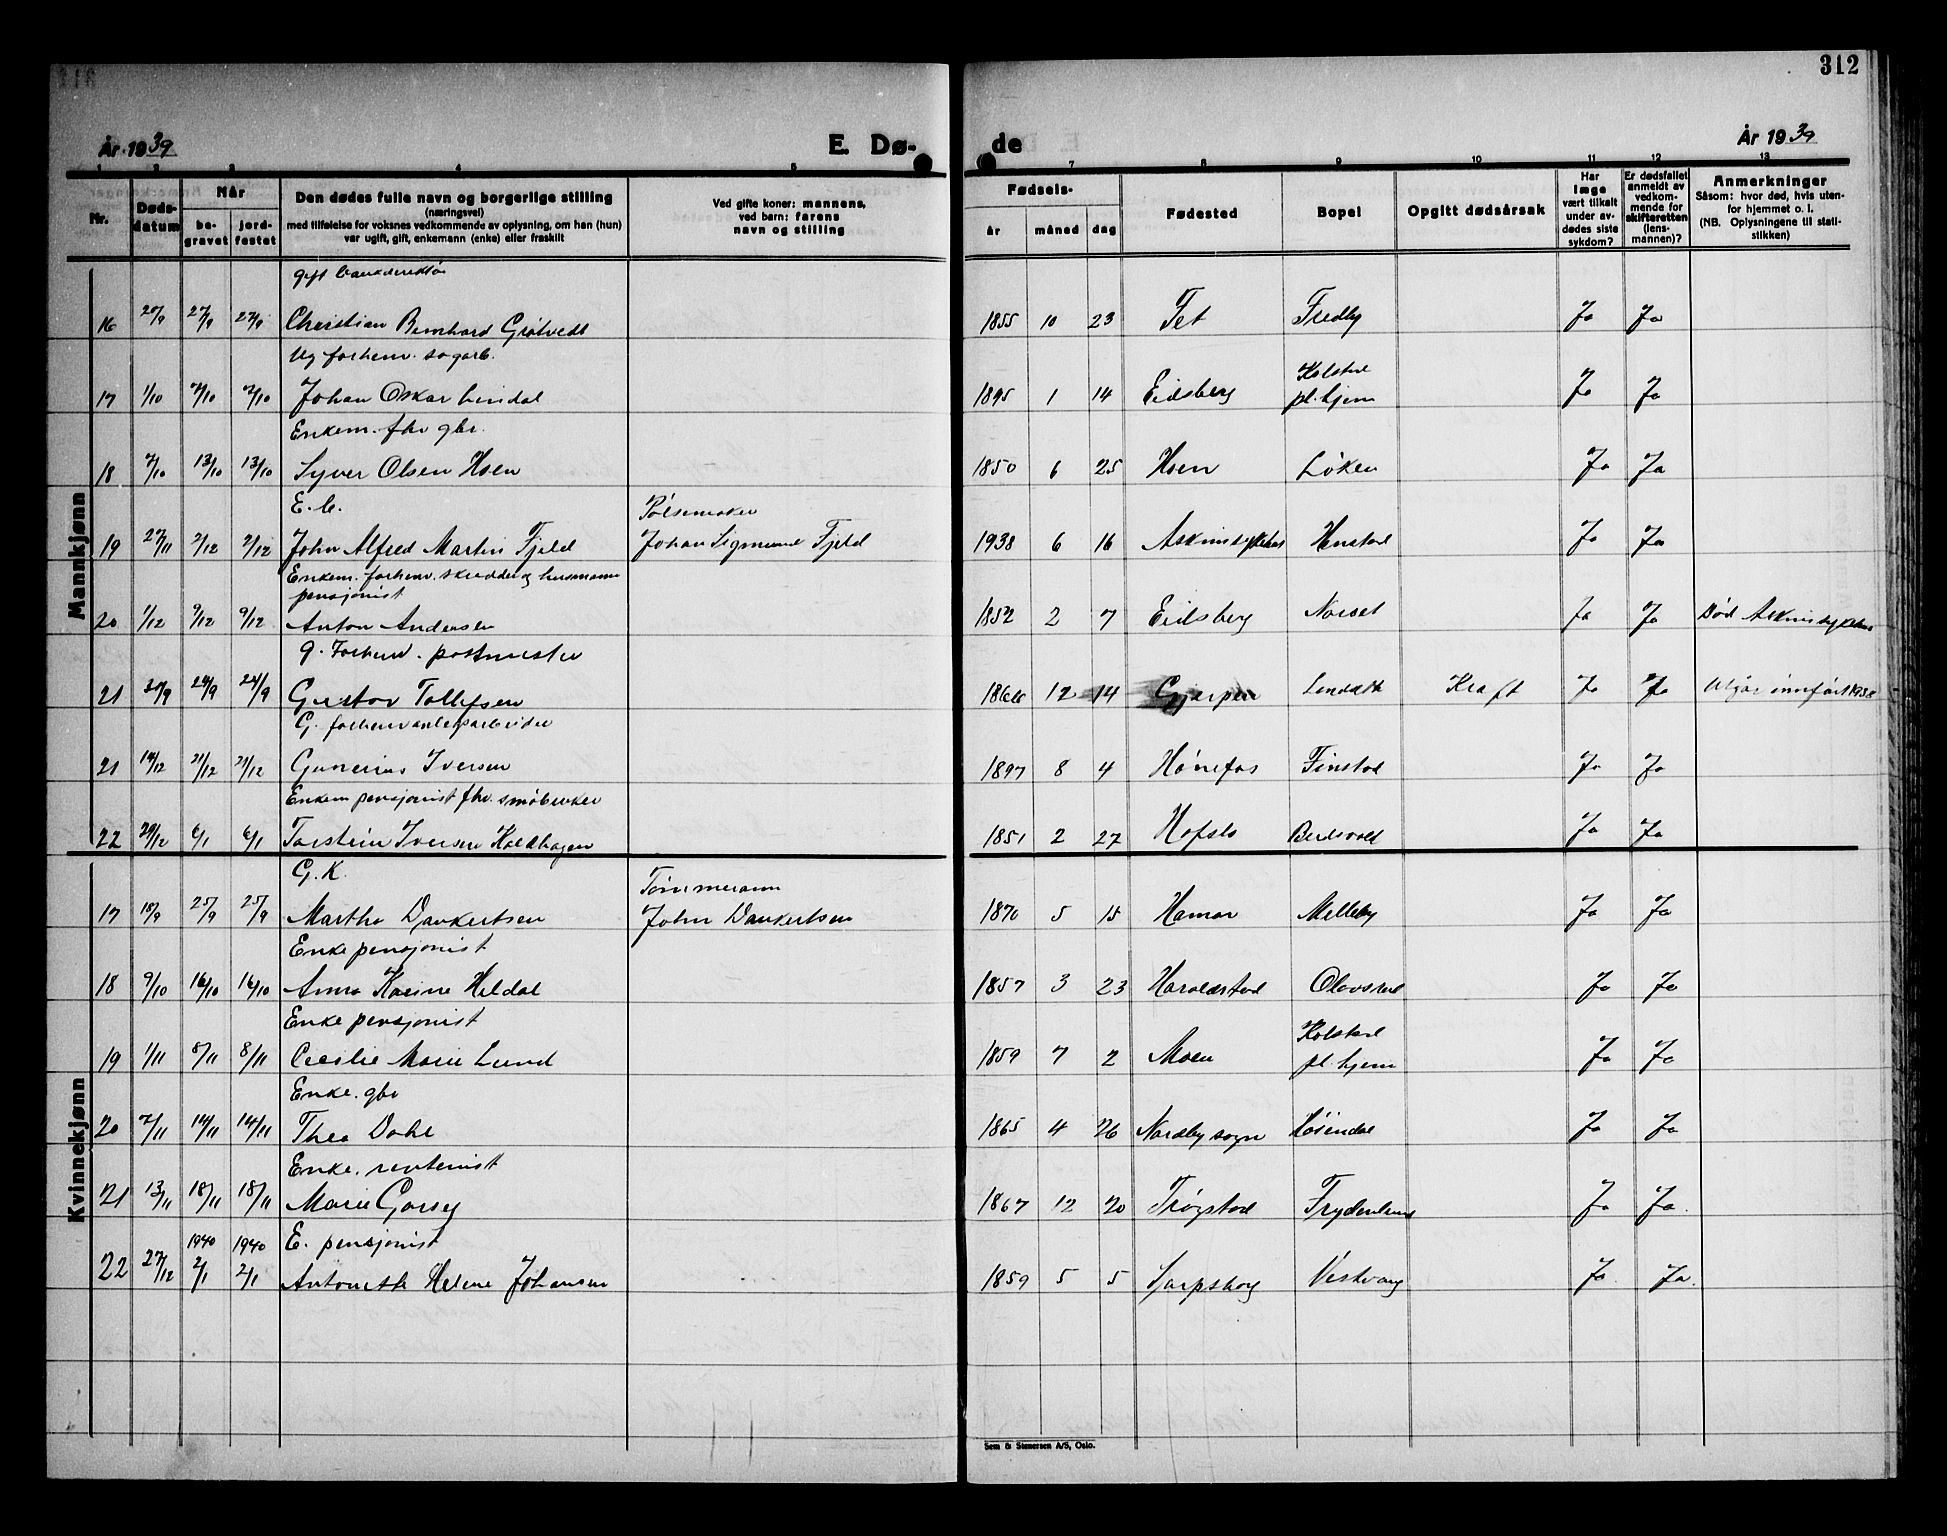 312
År 1939
E. Dø-
de
År 1939
1 2 3 4 5 7 8 9 10 11 12 13
Nr.
Døds-
datum
Når
be-
gravet
jord-
festet
Den dødes fulle navn og borgerlige stilling
(næringsvei)
med tilføielse for voksnes vedkommende av oplysning, om han (hun)
var ugift, gift, enkemann (enke) eller fraskilt
Ved gifte koner: mannens,
ved barn: farens
navn og stilling
Fødsels-
år måned dag
Fødested
Bopel
Opgitt dødsårsak
Har
læge
vært tilkalt
under av-
dødes siste
sykdom?
Er dødsfallet
anmeldt av
vedkom-
mende for
skifteretten
(lens-
mannen)?
Anmerkninger
Såsom: hvor død, hvis uten-
for hjemmet o. l.
(NB. Oplysningene til stati-
stikken)
Mannkjønn
gift bankdirektør
16 27/9 27/9 Christian Bernhard Grøtvedt 1855 10 23 Fet Fredby Ja Ja
Ug forhenv. sagarb.
Kolstad
17 1/10 7/10 7/10 Johan Oskar Lindal 1895 1 14 Eidsberg pl.hjem Ja Ja
Enkem. fhv gbr.
18 7/10 13/10 13/10 Syver Olsen Hoen 1850 6 25 Hoen Løken Ja Ja
E. b. Pølsemaker
19 27/11 2/12 2/12 John Alfred Martin Fjeld Johan Sigmund Fjeld 1938 6 16 Askimsykehus Henstad Ja Ja
Enkem. forhenv. skredder og husmann
pensjonist
20 1/12 9/12 9/12 Anton Andersen 1852 2 7 Eidsberg Norset Ja Ja Død Askimsykehus
g. Forhenv. postmester
21 20/9 24/9 24/9 Gustav Tollefsen 12 14 Gjerpen Kraft Ja Ja Utgår innført 1938
G. forhenv anleggsarbeider
21 14/12 21/12 21/12 Gunerius Iversen 1897 8 4 Hønefos Finstad Ja Ja
Enkem pensjonist fhv. småbruker
22 29/12 6/1 6/1 Torstein Iversen Koldhagen 1851 2 27 Hofslo Ja Ja
Kvinnekjønn
G. K. Tømmermann
17 18/9 25/9 25/9 Martha Dankertsen John Dankertsen 1870 5 15 Hamar Melleby Ja Ja
Enke pensjonist
18 9/10 16/10 16/10 Anna Karine Heldal 1857 3 23 Haraldstad Olavstad Ja Ja
Enke pensjonist
Kolstad
19 1/11 8/11 8/11 Cecilie Marie Lund 1859 7 2 Moen pl. hjem Ja Ja
Enke. gbr
20 7/11 14/11 14/11 Thea Dahl 1865 4 26 Nordby sogn Ja Ja
Enke. rentenist
21 13/11 18/11 18/11 Marie Garseg 1867 12 20 Trøgstad Frydenlund Ja Ja.
1940 1940 E. pensjonist
22 27/12 2/1 2/1 Antonette Helene Johansen 1859 5 5 Sarpsborg Vestvang Ja. Ja.
Sem & Stenersen A/S, Oslo.